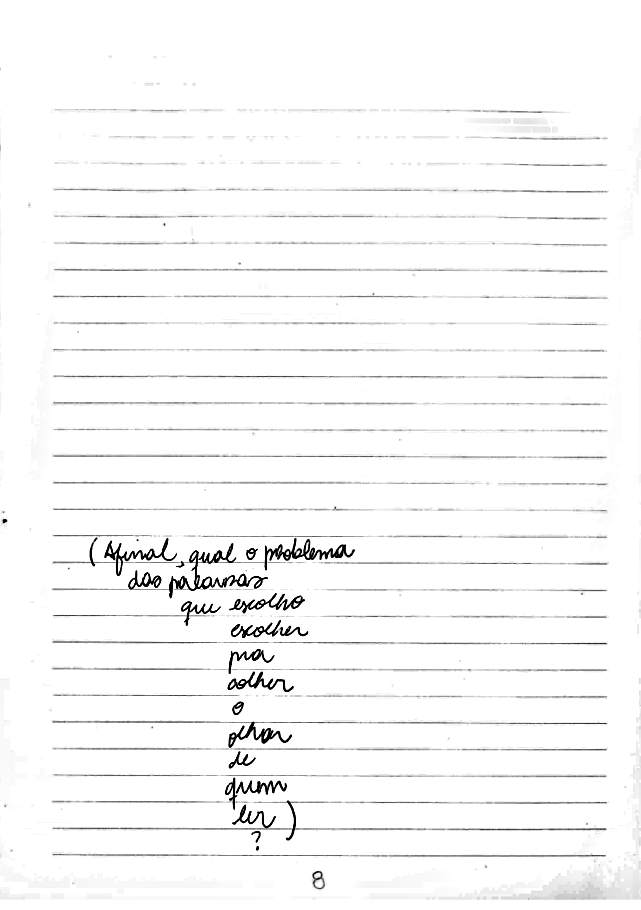 (Afinal, qual o problema
das palavras
que escolho
escolher
pra
colher
o
olhar
de
quem
ler)
?
8